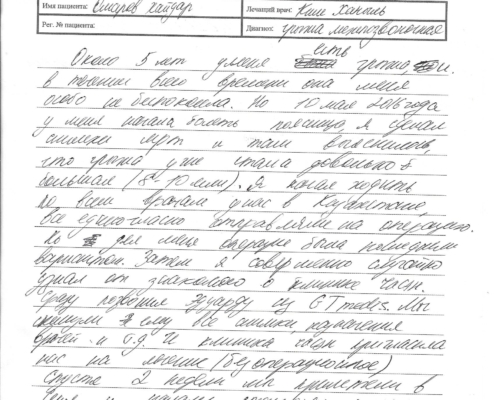 Имя пациента: Омаров Хайдар Лечащий врач: Ким Ханыль
Рег. № пациента: Диагноз: грыжа межпозвоночная
Около 5 лет у меня есть грыжа, и
в течении всего времени она меня
особо не беспокоила. Но 10 мая 2016 года
у меня начала болеть поясница, я сделал
снимки мрт и там выяснилось,
что грыжа уже стала довольно
большая (8-10 мм). Я начал ходить
по всем врачам у нас в Казахстане,
все единогласно отправляли на операцию.
Но для меня операция была последним
вариантом. Затем я совершенно случайно
узнал от знакомого о клинике Часэн.
Сразу позвонил Эдуарду из GTmedes. Мы
скинули ему все снимки, назначения
врачей и т.д. И клиника пригласила
нас на лечение (безоперационное)
Спустя 2 недели мы прилетели в